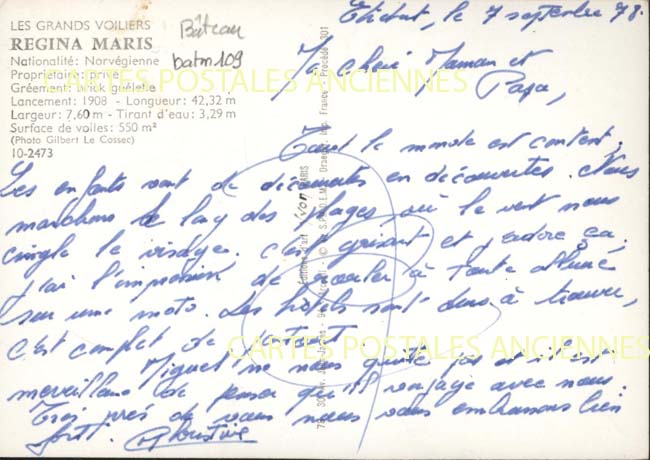 LES GRANDS VOILIERS
REGINA MARIS
Nationalité: Norvégienne
Propriétaire: privé
Gréement: brick goélette
Lancement: 1908 - Longueur: 42,32 m
Largeur: 7,60 m - Tirant d'eau: 3,29 m
Surface de voiles: 550 m²
(Photo Gilbert Le Cossec)
10-2473
Bâteau
batm109
le 7 septembre 78.
Ma chère Maman et
Papa,
Tout le monde est content.
Les enfants vont de découvertes en découvertes. Nous
marchons le long des plages où le vent nous
cingle le visage. C'est grisant et j'adore ça.
J'ai l'impression de rouler à toute allure
sur une moto. Les hôtels sont durs à trouver,
c'est complet de partout
Miguel ne nous quitte pas et il est
merveilleux de penser qu'il voyage avec nous.
Très près de vous nous vous embrassons bien
fort.
Editions d'art Yvon PARIS
CARTES POSTALES ANCIENNES
CARTES POSTALES ANCIENNES